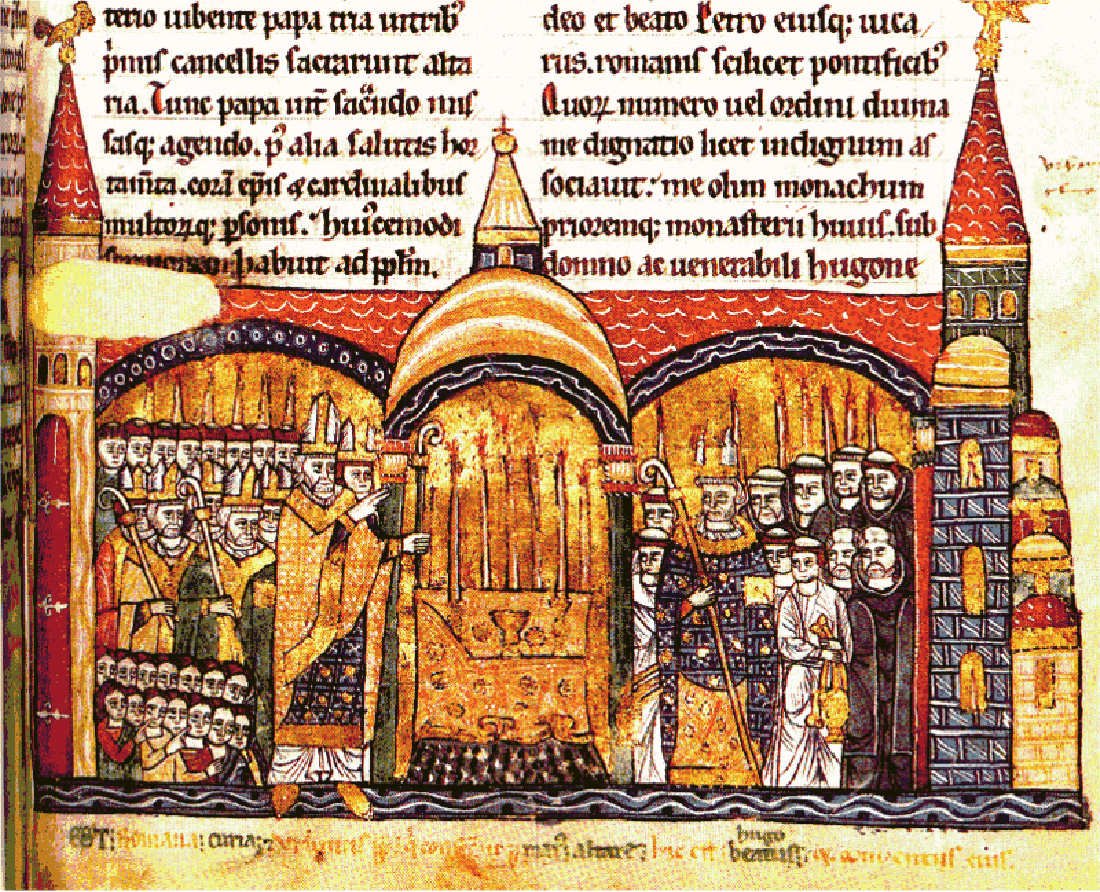 terio iubente papa tria in trib᷒
p̄mis cancellis sacrarunt alta
ria. Tunc papa int̄ sac̄ndo mis
sasq; agendo. p᷒ alia salutis hor
tam̄ta. corā ep̄is & cardinalibus
multorq; p̱sonis. huiꝰcemodi
habuit ad pp̄lm.
deo et beato Petro eiusq; uica
riis. romanis scilicet pontificib᷒
Quoꝝ numero uel ordini diuina
me dignatio licet indignum as
sociauit. me olim monachum
prioremq; monasterii huius. sub
domno ac uenerabili hugone
Romana; curia;
altare; hac
hugo
beatiss; conuentus eius.